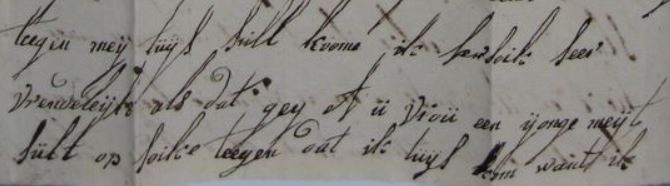 teegen meij tuijs sull koome ik versoik seer
vrindeleijk als dat geij of ü vroü een ijonge meijt
sült op soike teegen dat ik tuijs kom want ik